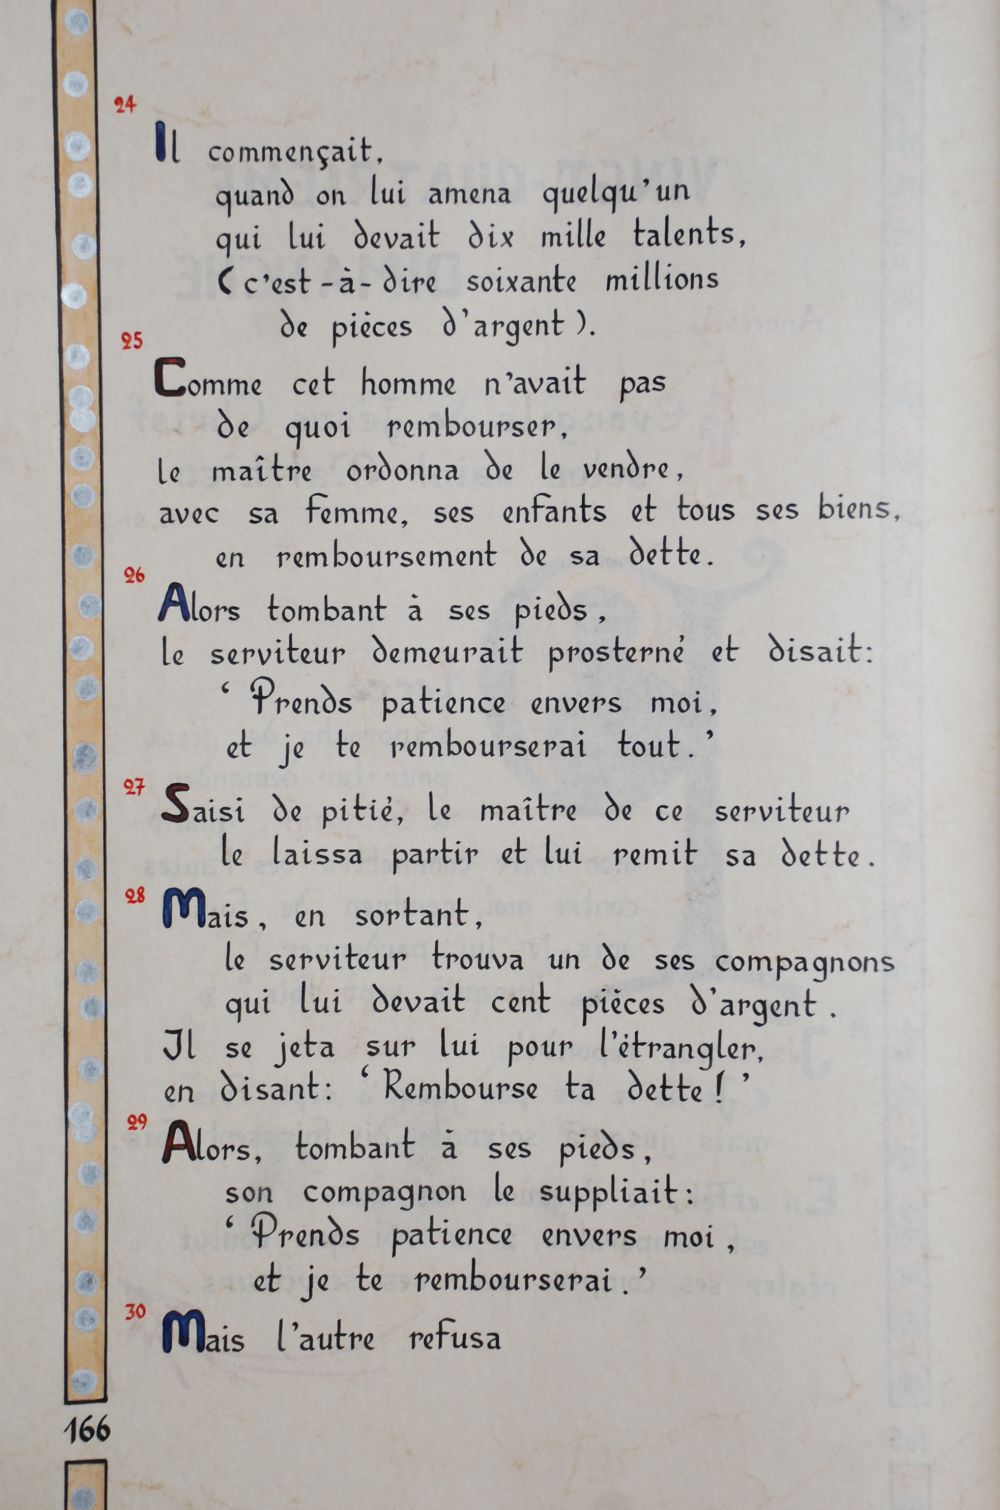 24
Il commençait,
quand on lui amena quelqu'un
qui lui devait dix mille talents,
(c'est-à-dire soixante millions
de pièces d'argent).
25
Comme cet homme n'avait pas
de quoi rembourser,
le maître ordonna de le vendre,
avec sa femme, ses enfants et tous ses biens,
en remboursement de sa dette.
26
Alors tombant à ses pieds,
le serviteur demeurait prosterné et disait:
‘Prends patience envers moi,
et je te rembourserai tout.’
27
Saisi de pitié, le maître de ce serviteur
le laissa partir et lui remit sa dette.
28
Mais, en sortant,
le serviteur trouva un de ses compagnons
qui lui devait cent pièces d'argent.
Il se jeta sur lui pour l'étrangler,
en disant: ‘Rembourse ta dette!’
29
Alors, tombant à ses pieds,
son compagnon le suppliait:
‘Prends patience envers moi,
et je te rembourserai.’
30
Mais l'autre refusa
166